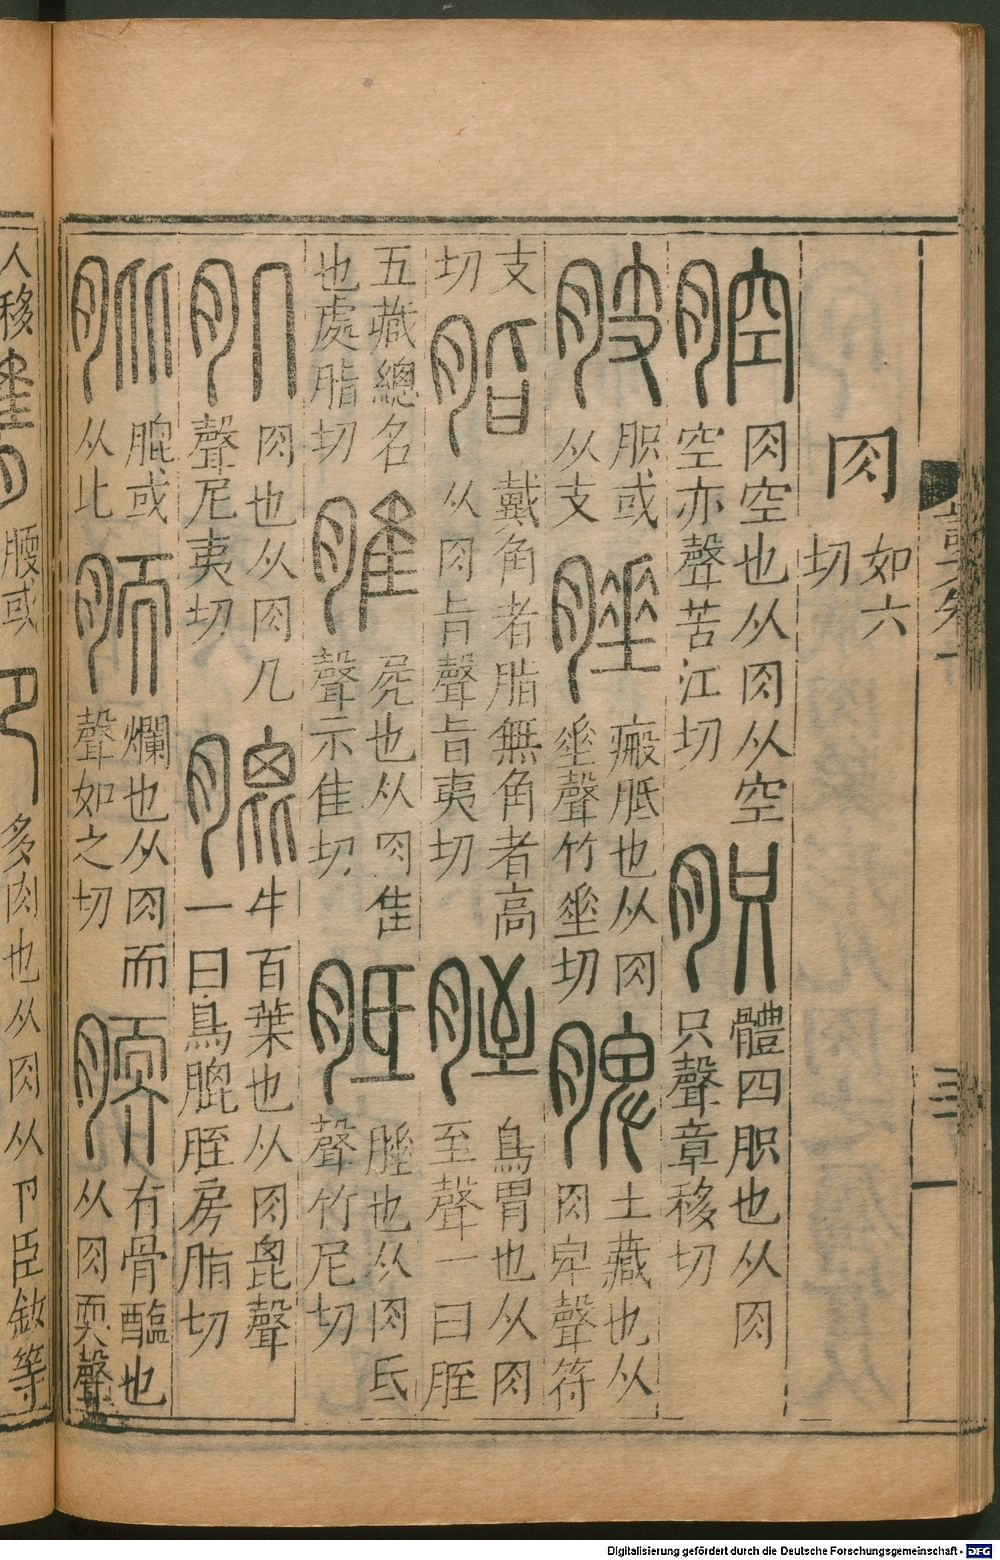 肉 如六
切
腔 肉空也从肉从空
空亦聲苦江切
胑 體四胑也从肉
只聲章移切
胑或
从支
腄 瘢胝也从肉
垂聲竹垂切
脾 土藏也从
肉卑聲符
支
切
脂 戴角者脂無角者高
从肉旨聲旨夷切
胵 鳥胃也从肉
至聲一曰胵
五藏總名
也處脂切
脽 屍也从肉隹
聲示隹切
胝 腄也从肉氐
聲竹尼切
肌 肉也从肉几
聲居夷切
膍 牛百葉也从肉毘聲
一曰鳥膍胵房脂切
膍或
从比
胹 爛也从肉而
聲如之切
腝 有骨醢也
从肉耎聲
人移
腰或
多肉也从肉从卪臣鉉等
Digitalisierung gefördert durch die Deutsche Forschungsgemeinschaft - DFG